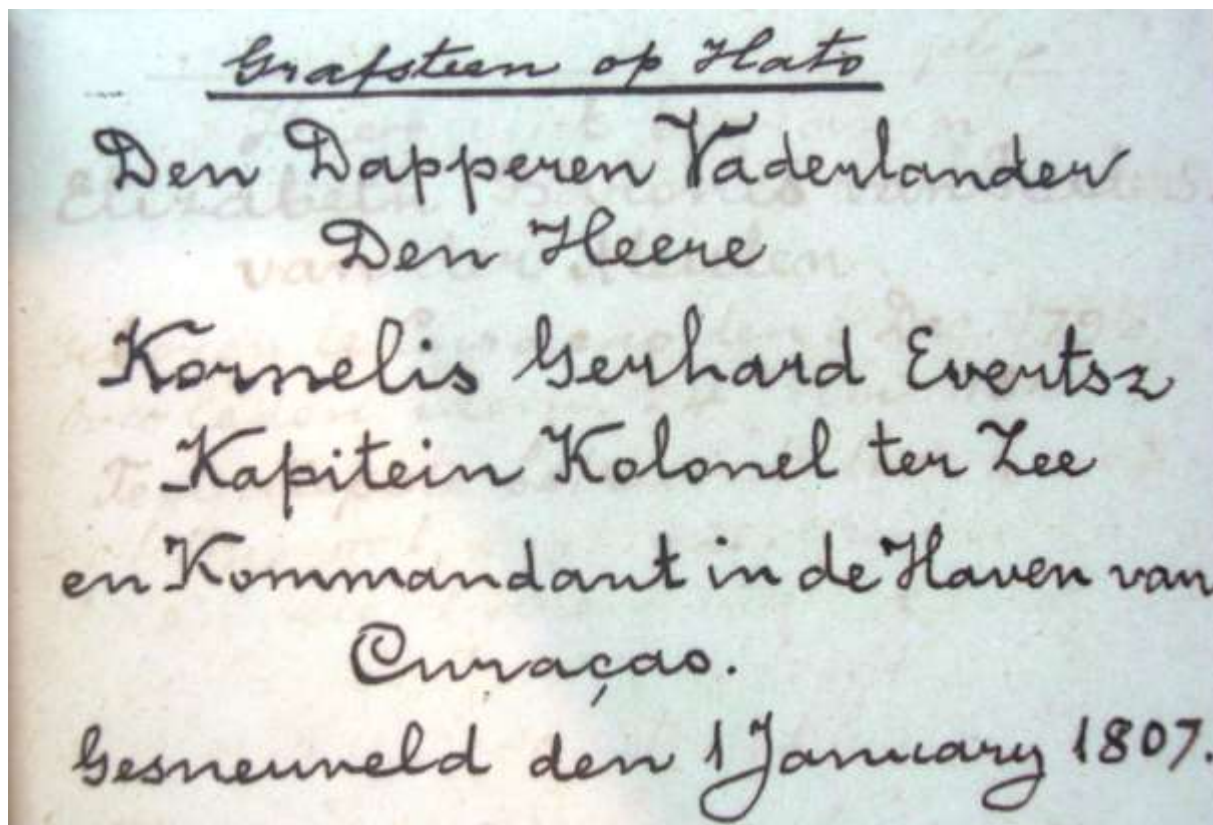 Grafsteen op Hato
Den Dapperen Vaderlander
Den Heere
Kornelis Gerhard Evertsz
Kapitein Kolonel ter Zee
en Kommandant in de Haven van
Curaçao.
Gesneuveld den 1 January 1807.